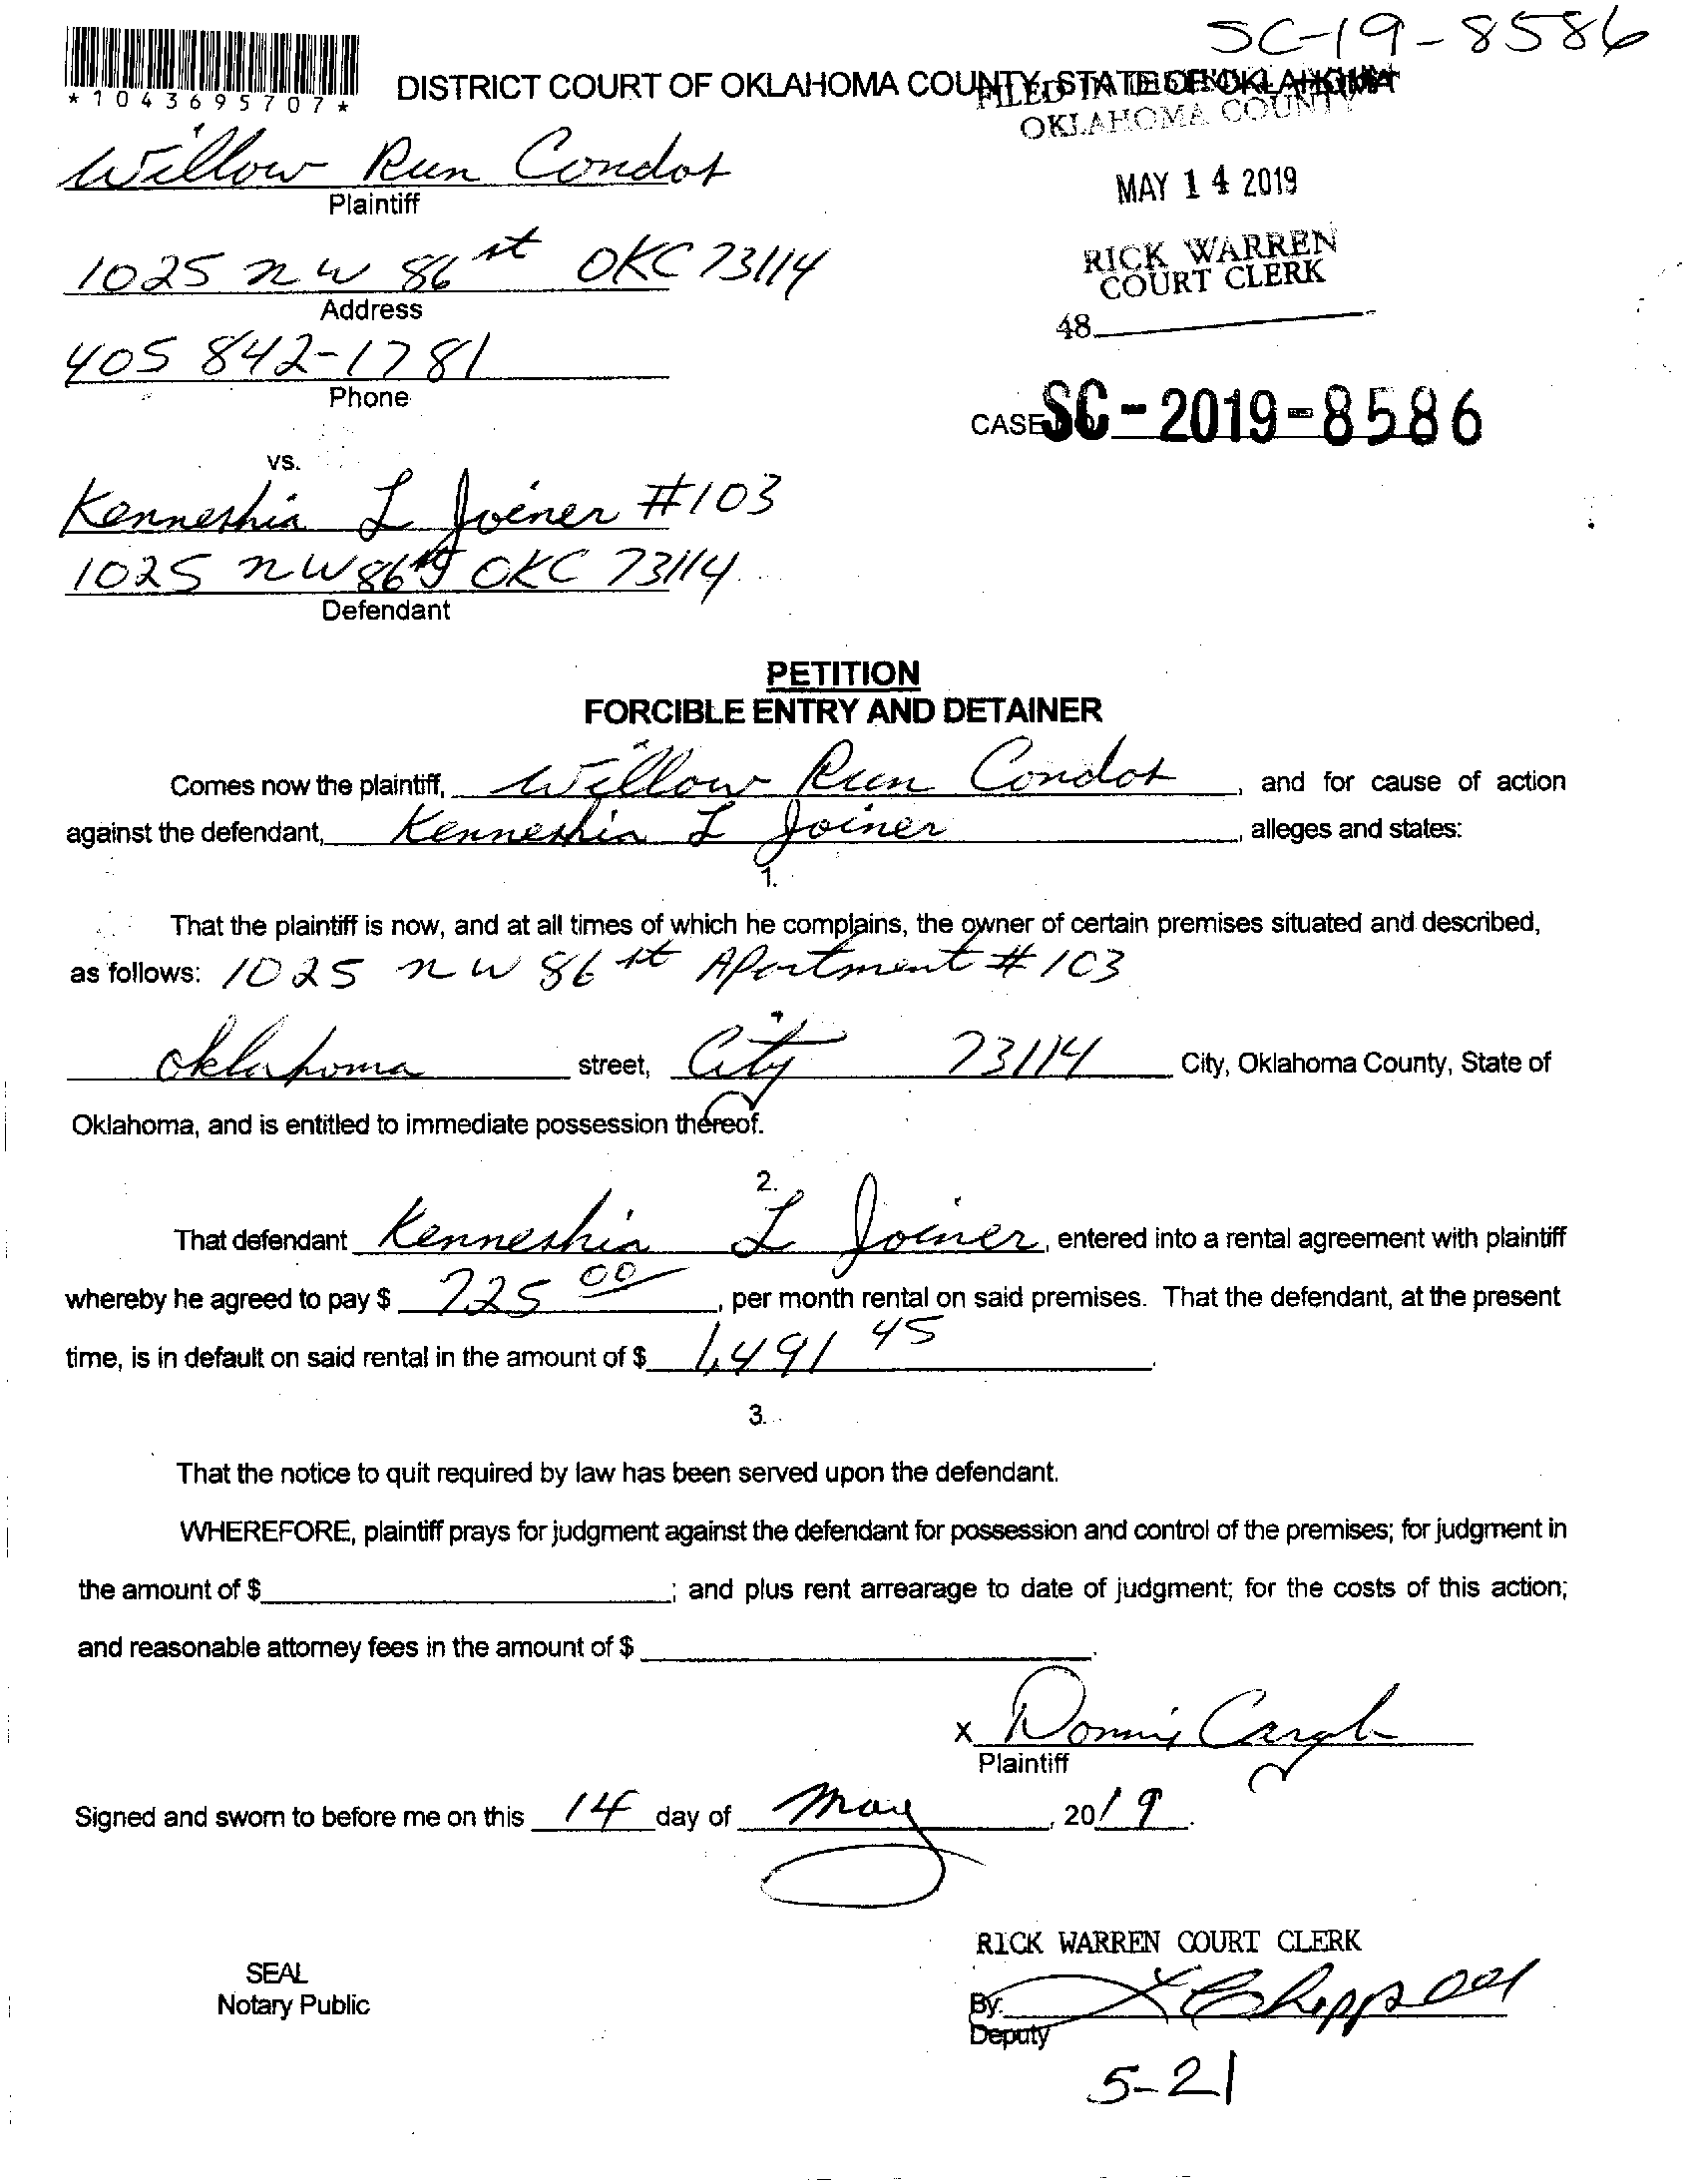 SC-19-8586
*1043695707*
DISTRICT COURT OF OKLAHOMA COUNTY, STATE OF OKLAHOMA
FILED IN DISTRICT COURT
OKLAHOMA COUNTY
Willow Run Condos
Plaintiff
MAY 14 2019
1025 NW 86 st OKC 73114
Address
RICK WARREN
COURT CLERK
48
405 842-1781
Phone
CASE SC-2019-8586
vs.
Kenneshia L Joiner #103
1025 NW 86 OKC 73114
Defendant
PETITION
FORCIBLE ENTRY AND DETAINER
Comes now the plaintiff, Willow Run Condos, and for cause of action
against the defendant, Kenneshia L Joiner, alleges and states:
1.
That the plaintiff is now, and at all times of which he complains, the owner of certain premises situated and described,
as follows: 1025 NW 86 st Apartment #103
Oklahoma street, City 73114 City, Oklahoma County, State of
Oklahoma, and is entitled to immediate possession thereof.
2.
That defendant Kenneshia L Joiner, entered into a rental agreement with plaintiff
whereby he agreed to pay $ 725 00, per month rental on said premises. That the defendant, at the present
time, is in default on said rental in the amount of $ 45.
3.
That the notice to quit required by law has been served upon the defendant.
WHEREFORE, plaintiff prays for judgment against the defendant for possession and control of the premises; for judgment in
the amount of $ ; and plus rent arrearage to date of judgment; for the costs of this action;
and reasonable attorney fees in the amount of $ .
x Donnis
Plaintiff
Signed and sworn to before me on this 14 day of May, 2019.
RICK WARREN COURT CLERK
SEAL
Notary Public
By:
Deputy
5-21